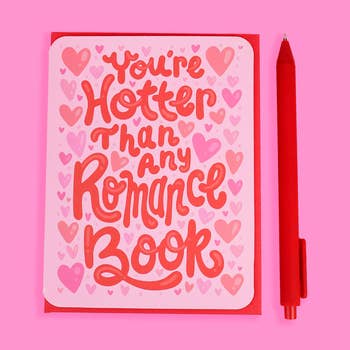 You're
Hotter
Than Any
Romance
Book